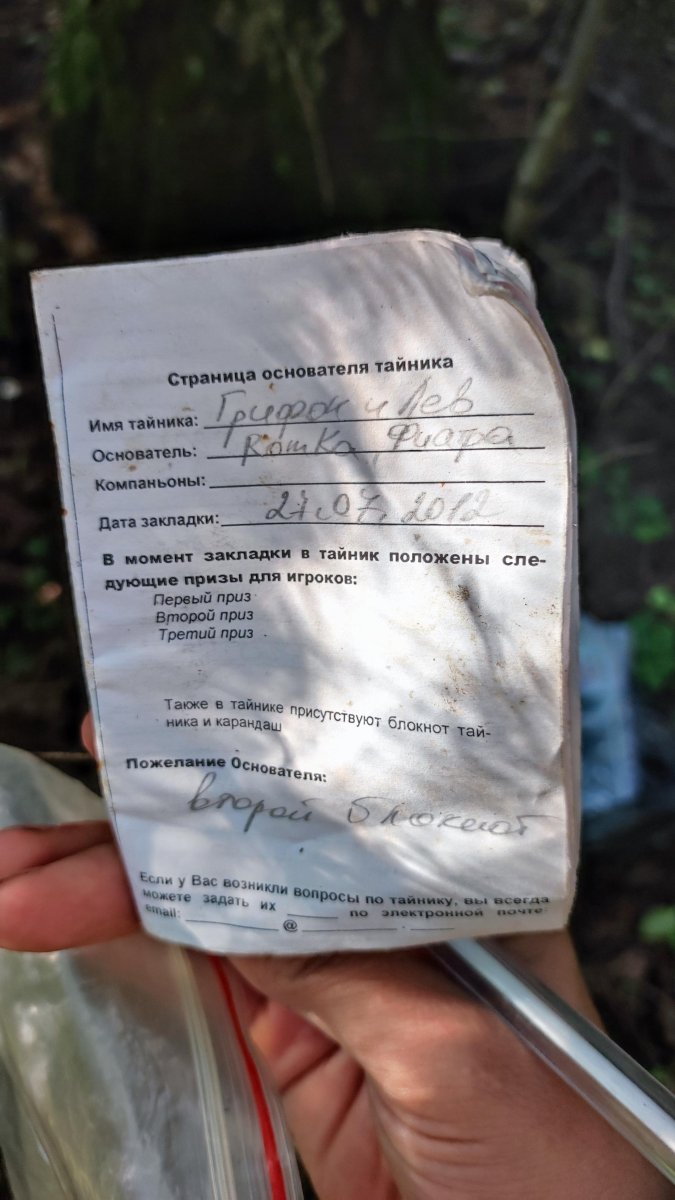 Страница основателя тайника
Имя тайника: Грифон и Лев
Основатель: КотКа, Фиатра
Компаньоны:
Дата закладки: 27.07.2012
В момент закладки в тайник положены сле-
дующие призы для игроков:
Первый приз
Второй приз
Третий приз
Также в тайнике присутствуют блокнот тай-
ника и карандаш
Пожелание Основателя:
второй блокнот
Если у Вас возникли вопросы по тайнику, вы всегда
можете задать их ______ по электронной почте-
email: ____________@____________.______